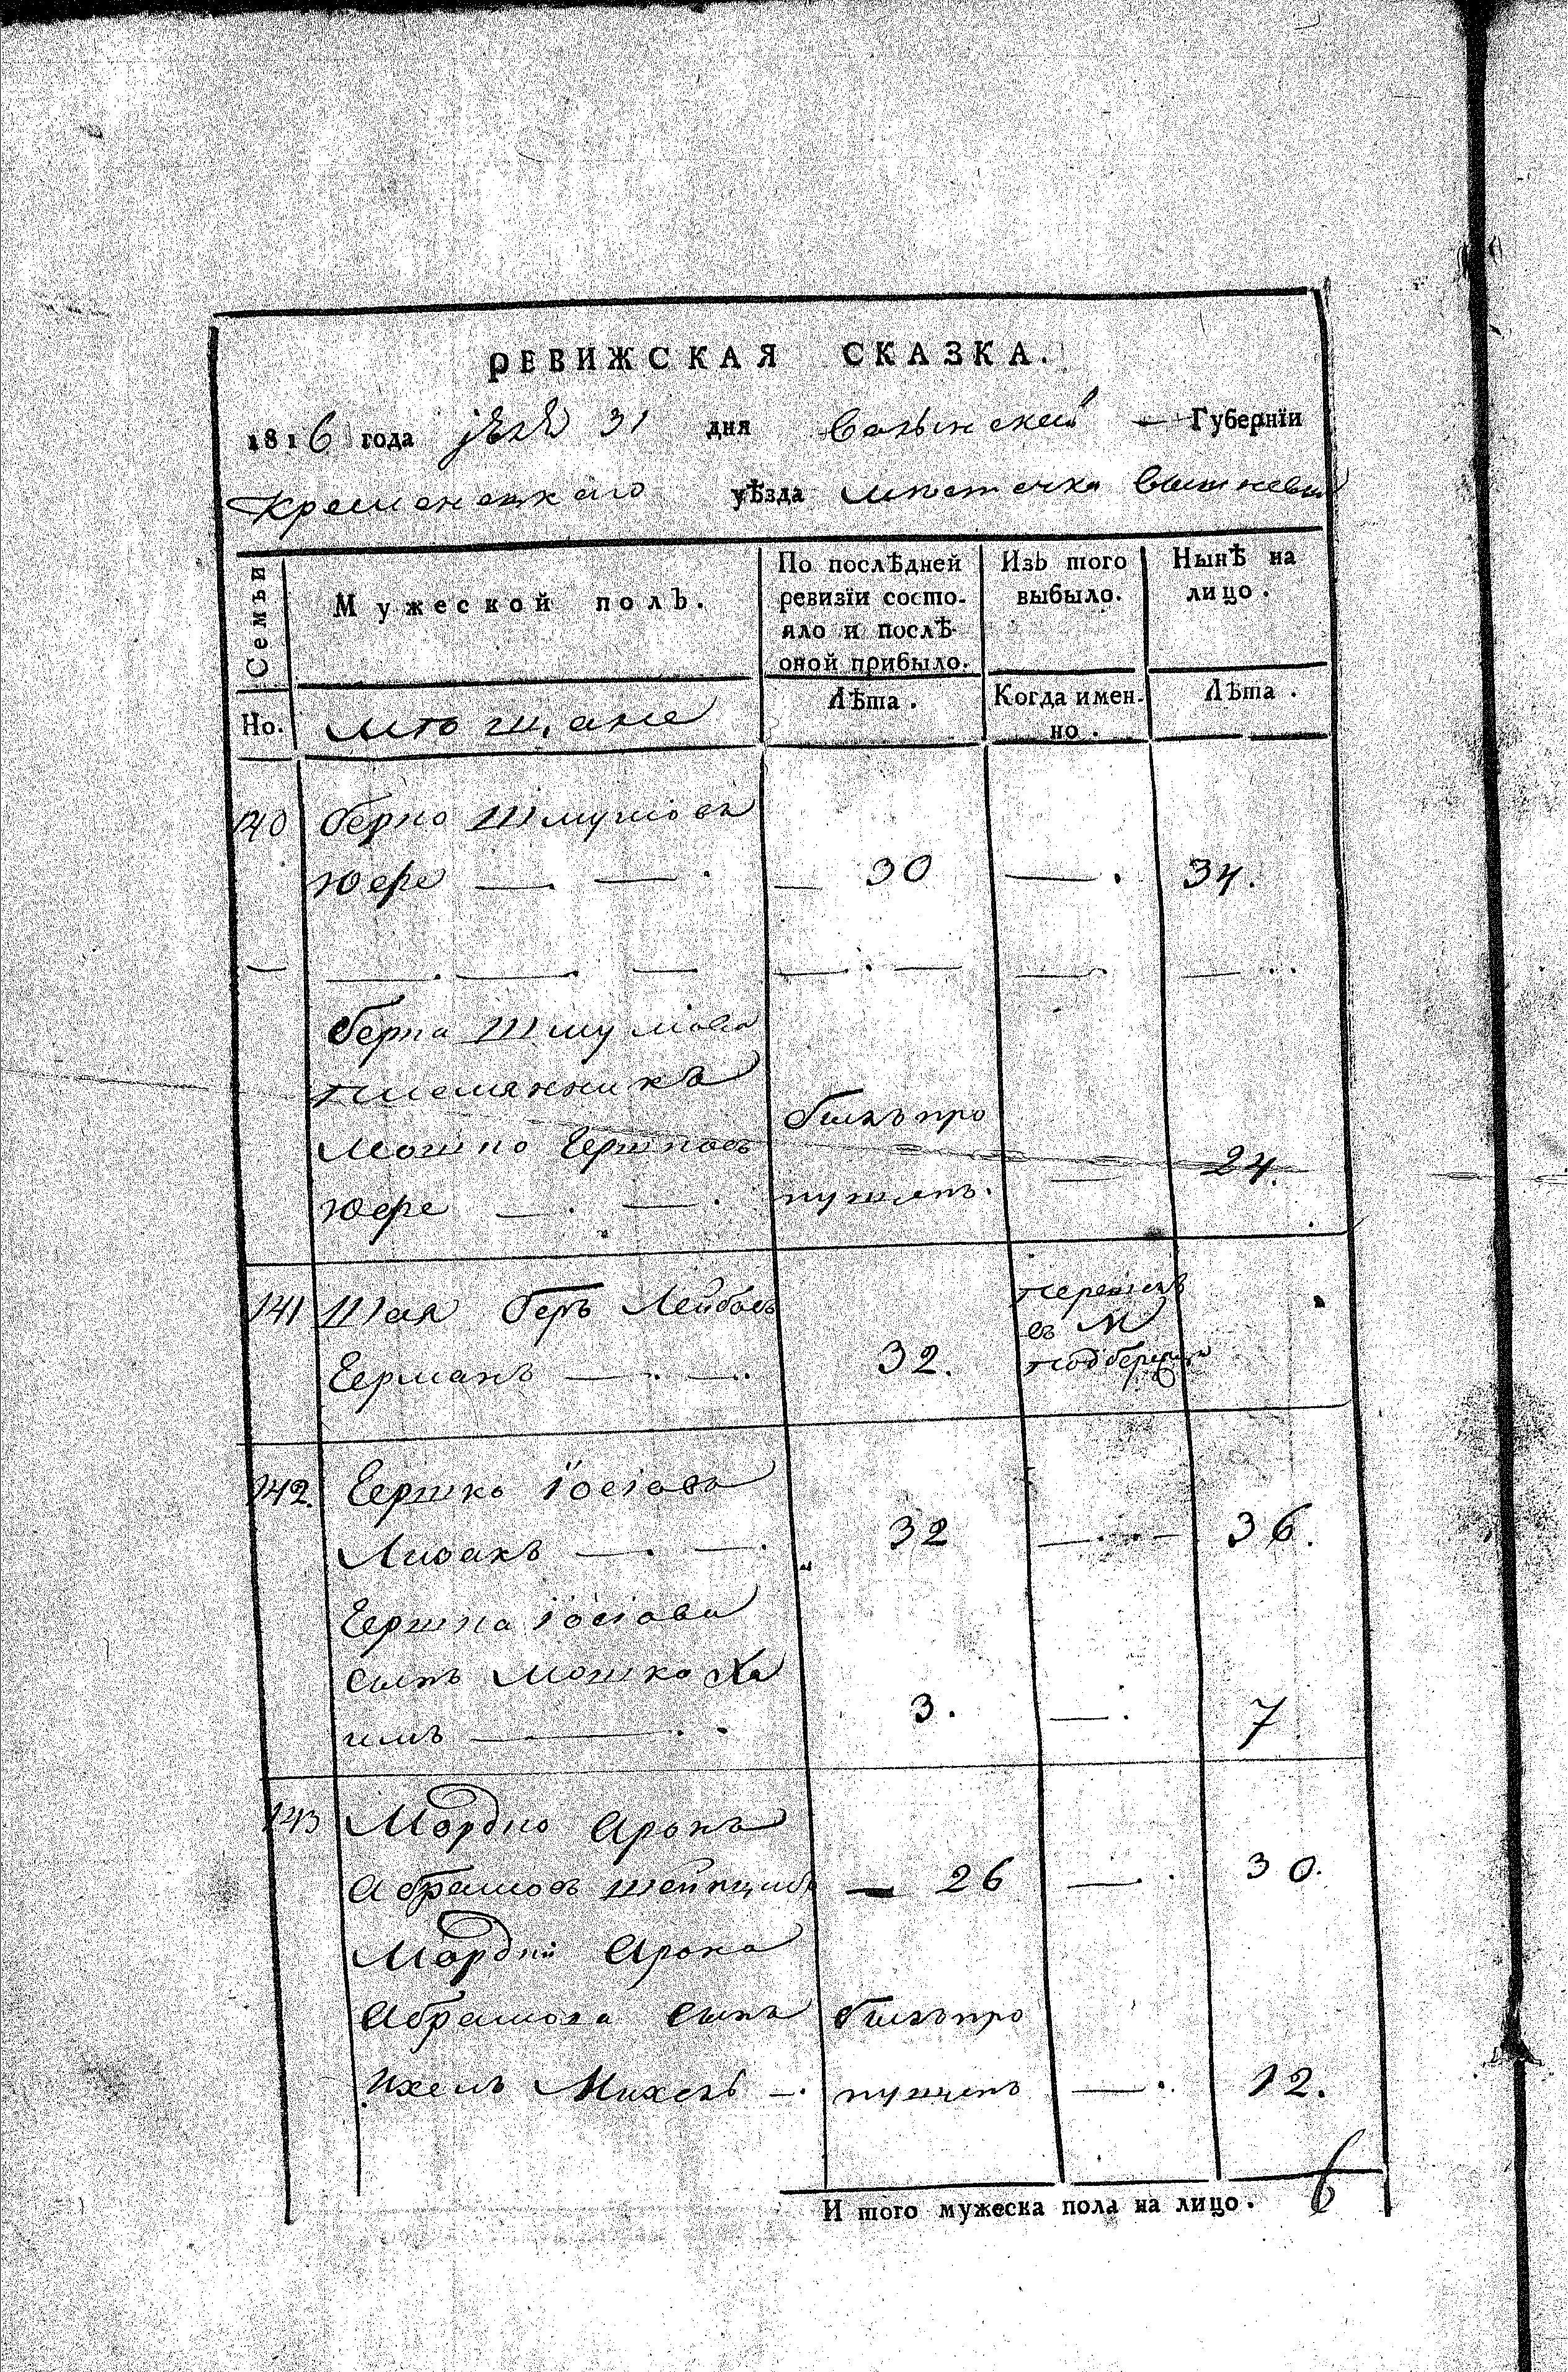 РЕВИЖСКАЯ СКАЗКА.
1816 года 31 дня Волынской Губернїи
Кременецкаго уѣзда местечка Вишневца
Семьи
Мужеской полъ.
По послѣдней ревизїи состояло и послѣ оной прибыло.
Изъ того выбыло.
Нынѣ на лицо.
Но.
мѣщане
Лѣта.
Когда именно.
Лѣта.
140 Берко Шмулювъ
Юфе — . — . — 30 — . 34.
— — . — . — — . — — . — . .
Берка Шмулюва
племянникъ
Мошко Гершковъ былъ про
Юфе — . — . пущенъ. — 24.
141 Шая Беръ Лейбовъ перешелъ
въ М
Германъ — . — . 32. Подберезцы
142. Гершко Іосіовъ
Лисакъ — . — . 32 — . . — 36.
Гершка Іосіова
сынъ Мошко Ха
имъ — . . 3. — . 7
143 Мордко Аронъ
Абрамовъ — 26 — . 30.
Мордки Арона
Абрамова сынъ былъ про
Ихель Михель — . пущенъ — . 12.
И того мужеска пола на лицо. 6